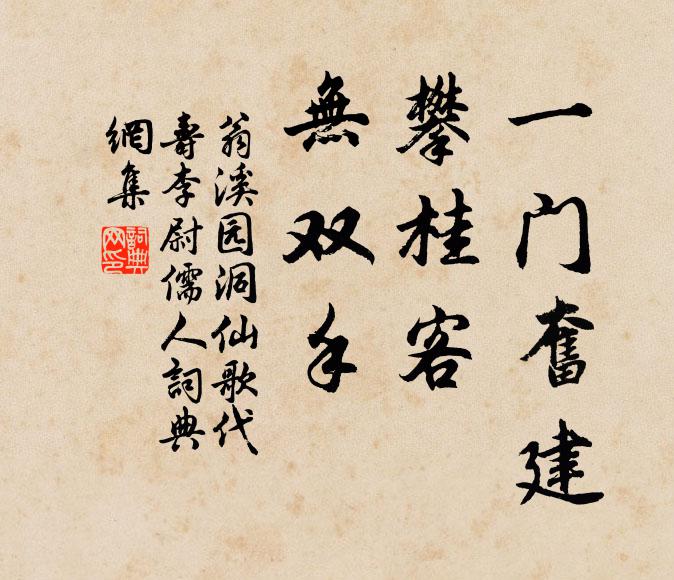 一门奮建
攀桂客
無双手
翁溪园洞仙歌代
壽李尉儒人詞典
網集
詞典网印